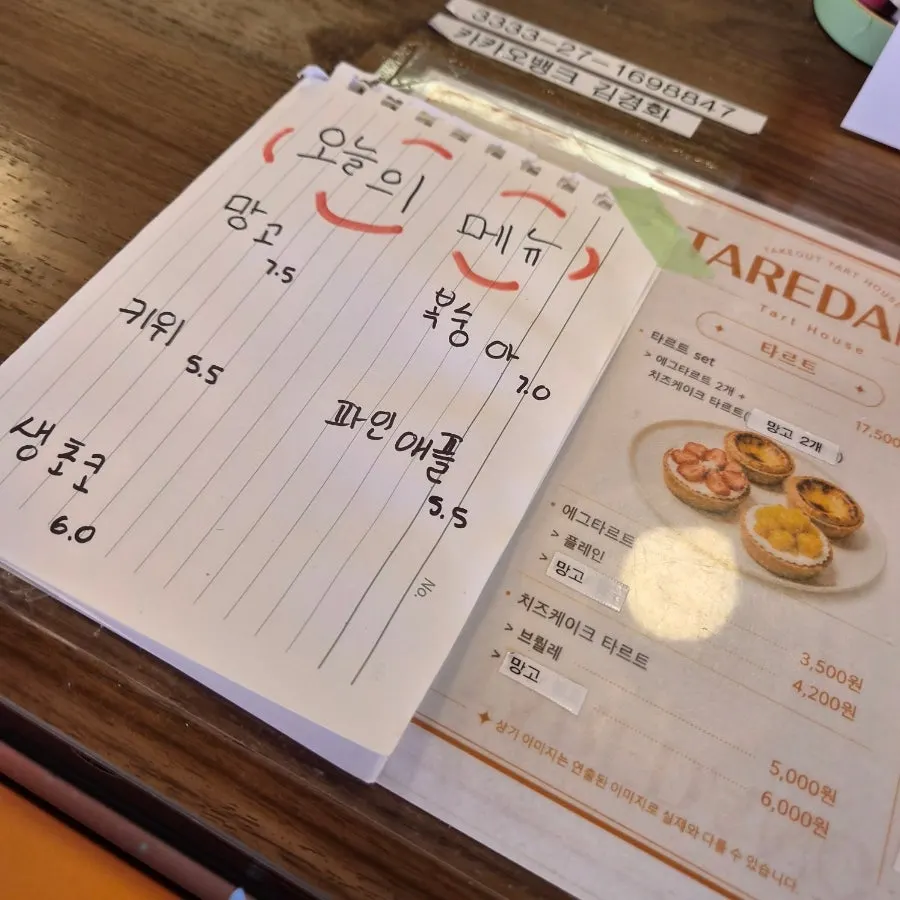 3333-27-1698847
카카오뱅크 김경화
오늘의 메뉴
망고
7.5
복숭아
7.0
키위
5.5
파인애플
5.5
생초코
6.0
No.
TAKEOUT TART HOUSE
TAREDA
Tart House
타르트
• 타르트 set
> 에그타르트 2개 +
치즈케이크 타르트( 망고 2개 )
17,500
• 에그타르트
> 플레인
3,500원
> 망고
4,200원
• 치즈케이크 타르트
> 브륄레
5,000원
> 망고
6,000원
상기 이미지는 연출된 이미지로 실제와 다를 수 있습니다.